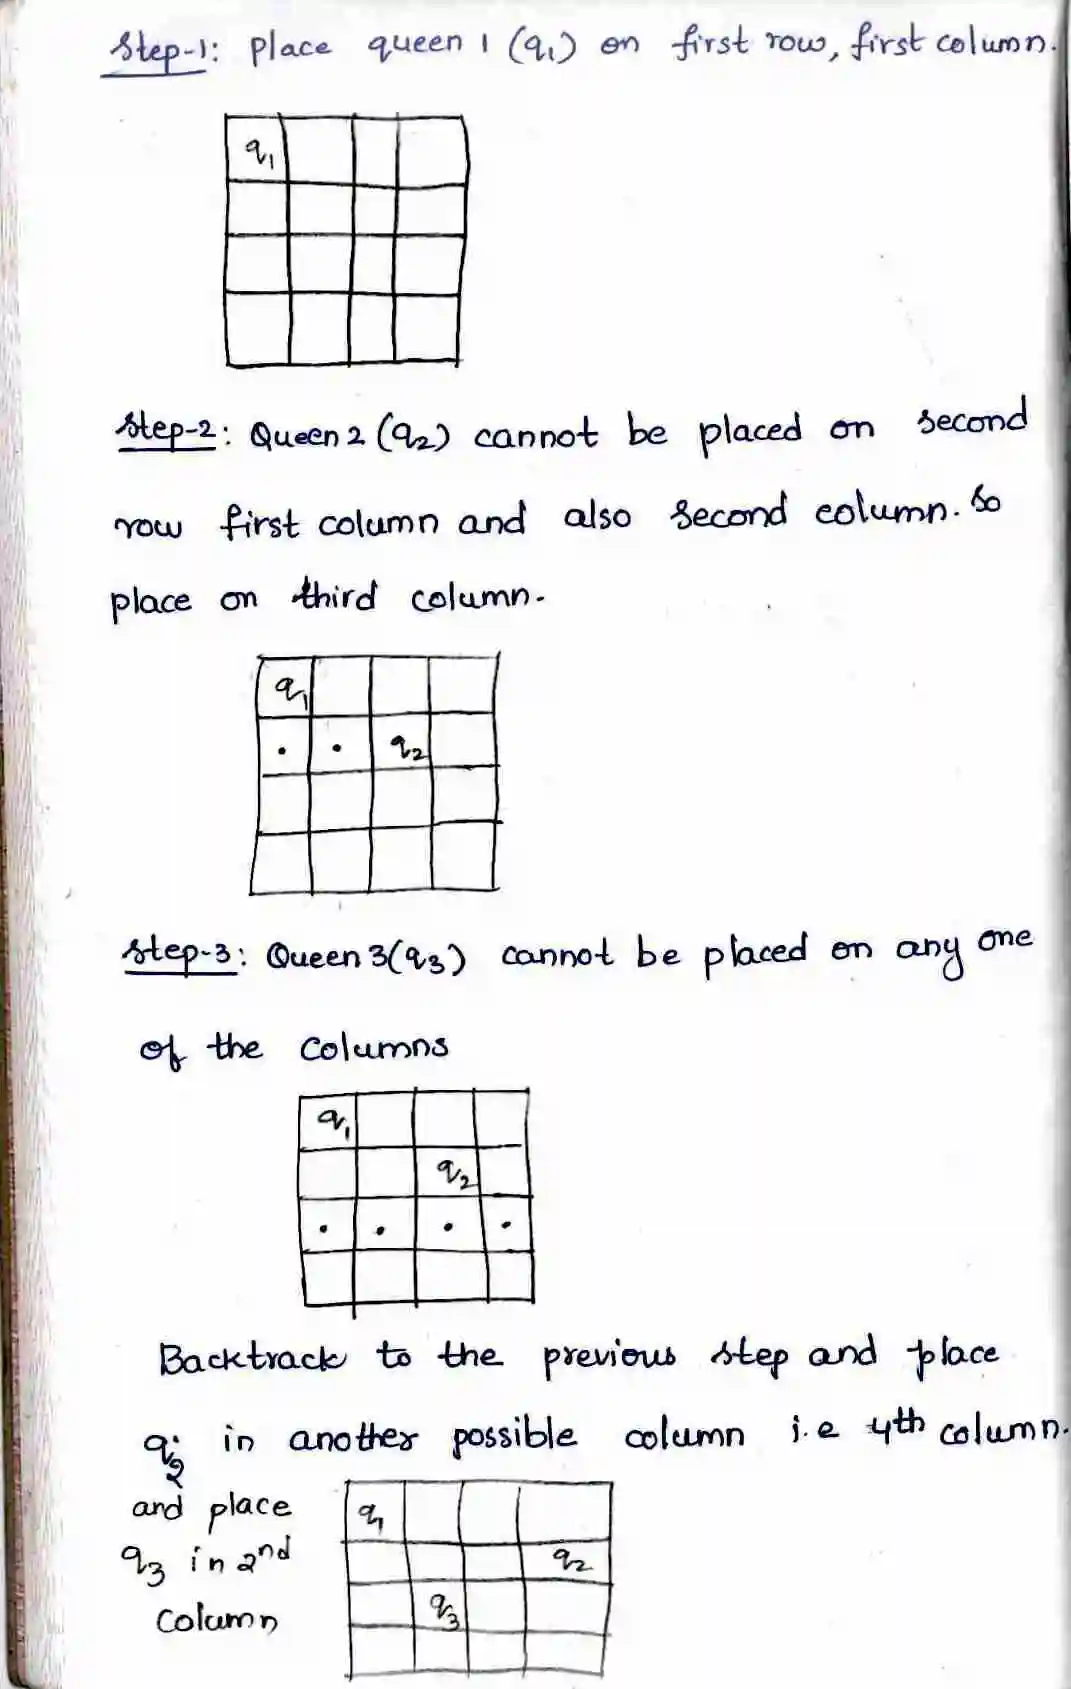 Step-1: Place queen 1 (q1) on first row, first column.
q1
Step-2: Queen 2 (q2) cannot be placed on second
row first column and also second column. So
place on third column.
q1
. . q2
Step-3: Queen 3(q3) cannot be placed on any one
of the columns
q1
q2
. . . .
Backtrack to the previous step and place
q2 in another possible column i.e 4th column.
and place
q3 in 2nd
Column
q1
q2
q3